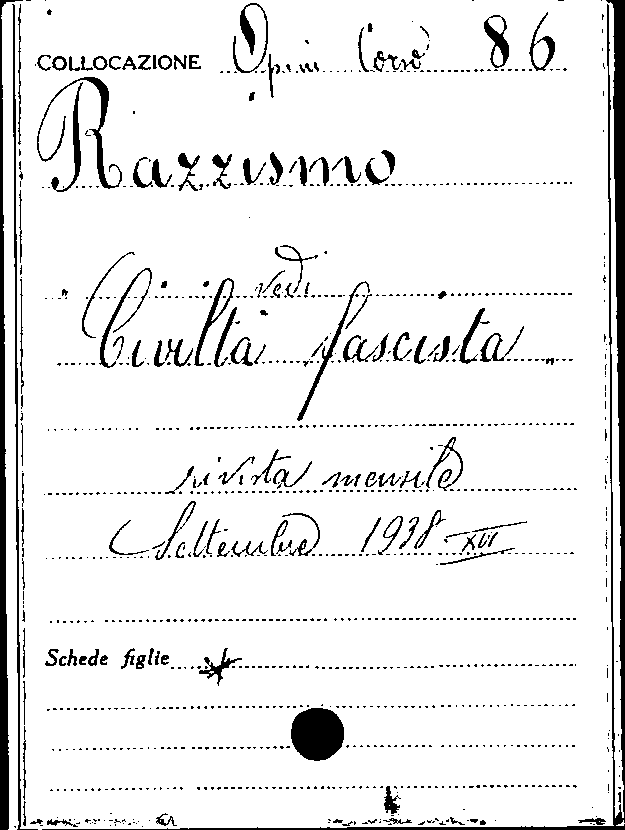 COLLOCAZIONE Opini Corso 86
Razzismo
vedi
"Civiltà fascista"
rivista mensile
Settembre 1938 XVI
Schede figlie